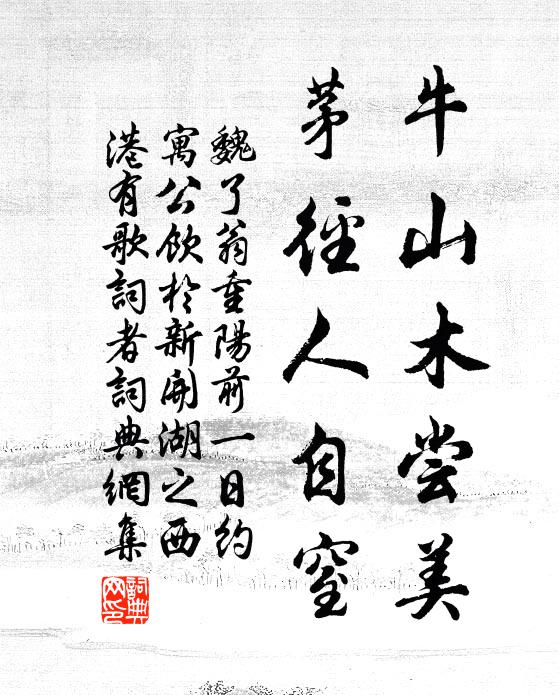 牛山木尝美
茅径人自窒
魏了翁重陽前一日約
寓公飲於新開湖之西
港有歌詞者詞典網集
詞典
网印